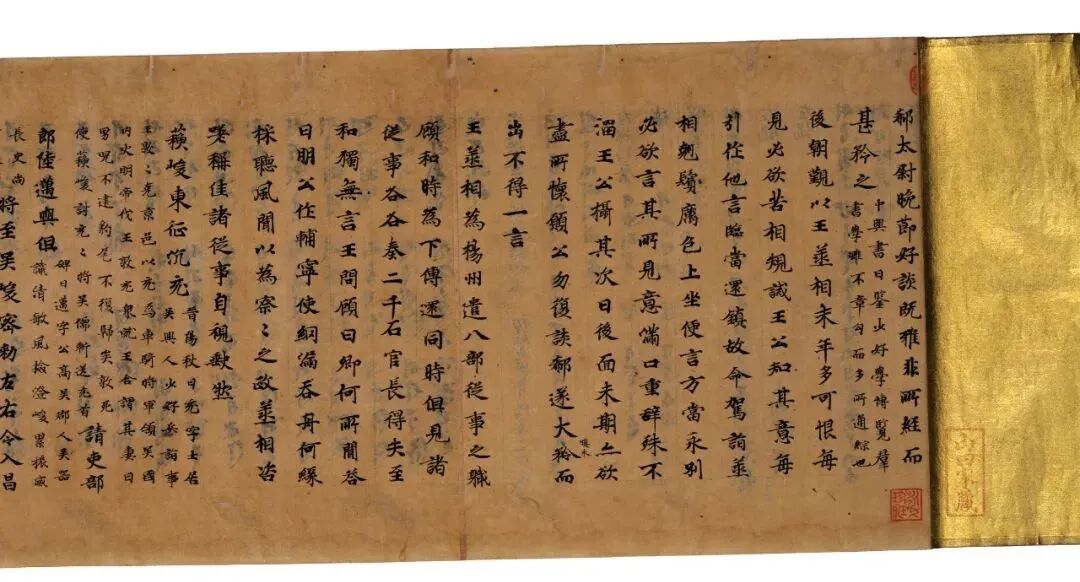 郗太尉晚節好談既雅非所經而
甚矜之
中興書曰鑒少好學博覽群
書學雖不章句而多所通綜也
後朝覲以王丞相末年多可恨每
見必欲苦相規誡王公知其意每
引作他言臨當還鎮故命駕詣丞
相翹鬢厲色上坐便言方當永別
必欲言其所見意滿口重辭殊不
溜王公攝其次曰後面未期亦欲
盡所懷願公勿復談郗遂大矜而
出不得一言
王丞相為楊州遣八部從事之職
顧和時為下傳還同時俱見諸
從事各各奏二千石官長得失至
和獨無言王問顧曰卿何所聞答
曰明公作輔寧使網漏吞舟何緣
採聽風聞以為察〻之政丞相咨
嗟稱佳諸從事自視缺然
蘇峻東征沈充
晉陽秋曰充字士居
吳興人少好兵諂事
王敦〻克京邑以充為車騎將軍領吳國
內史明帝伐王敦充率眾就王含謂其妻曰
男兒不建豹尾不復歸矣敦死
使蘇峻討充〻將吳儒斬送充首
請吏部
郎陸邁與俱
碑曰邁字公高吳郡人吳器
識清敏風檢澄峻累振威
長史尚
將至吳峻密勑左右令入昌